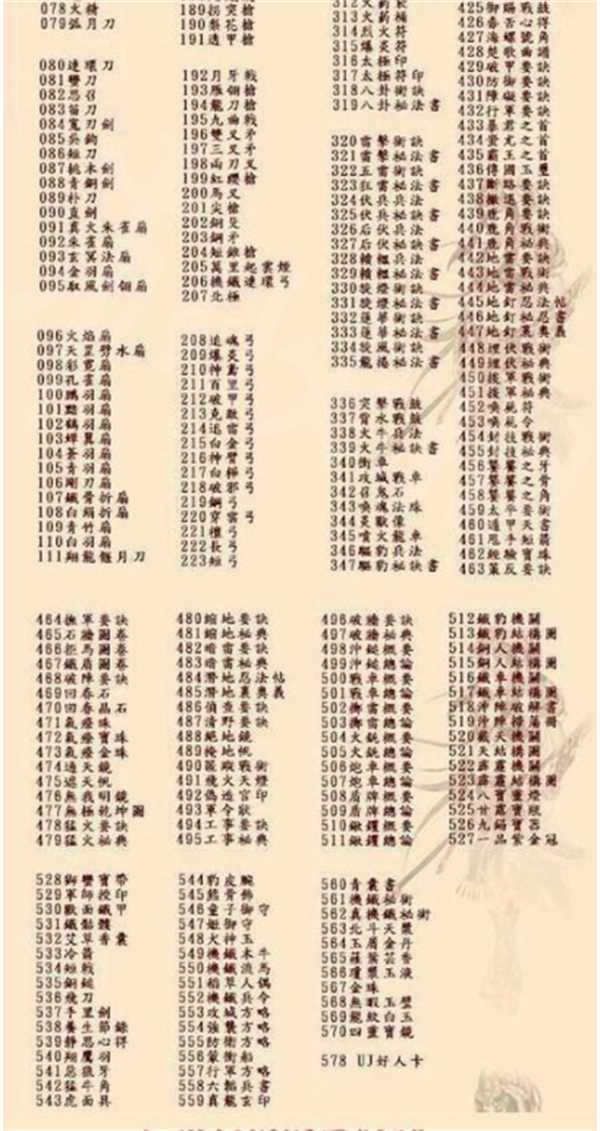 078火精
079弧月刀
080連環刀
081彎刀
082忍召
083苗刀
084寬刃劍
085吳鉤
086短刀
087桃木劍
088青銅劍
089朴刀
090直劍
091真火朱雀扇
092朱雀扇
093玄冥法扇
094金羽扇
095馭風劍翎扇
096火焰扇
097天罡劈水扇
098彩霓扇
099孔雀扇
100鵰羽扇
101黯羽扇
102鶴羽扇
103蟬翼扇
104蒼羽扇
105青羽扇
106剛刀扇
107鐵骨折扇
108白絹折扇
109青竹扇
110白羽扇
111翔龍偃月刀
189拐突槍
190梨花槍
191透甲槍
192月牙戟
193雁翎槍
194龍刀槍
195九曲戟
196雙叉矛
197三叉矛
198兩刃叉
199紅纓槍
200馬叉
201尖槍
202銅殳
203銅矛
204短錐槍
205萬里起雲煙
206機鐵連環弓
207北極
208追魂弓
209爆炎弓
210神鳶弓
211百里弓
212破甲弓
213克敵弓
214迅雷弓
215白金弓
216神臂弓
217白樺弓
218破邪弓
219鋼弓
220穿雲弓
221檀弓
222長弓
223短弓
312火箭
313火箭桶
314烈火符
315爆炎符
316太極印
317太極符印
318八卦術訣
319八卦秘法書
320雷擊術訣
321雷擊秘法書
322五雷術訣
323狂雷秘法書
324伏兵兵法
325伏兵秘訣書
326后伏兵法
327后伏秘訣書
328轒轀兵法
329轒轀秘法書
330旋燈術訣
331旋燈秘法書
332蓮華術訣
333蓮華秘法書
334旋風術訣
335龍捲秘法書
336突擊戰鼓
337背水戰鼓
338火牛兵法
339火牛秘訣書
340衝車
341攻城戰車
342召鬼石
343喚魂法珠
344炎獸像
345噴火龍車
346驅豹兵法
347驅豹秘訣書
425御賜戰鼓
426毒舌心得
427海螺號角
428楚歌曲譜
429破甲要訣
430防御要訣
431障礙要訣
432行軍要訣
433暴君之首
434蚩尤之首
435霸王之首
436傳國玉璽
437斷路要訣
438撤退要訣
439鹿角要訣
440鹿角戰術
441鹿角秘典
442地雷要訣
443地雷戰術
444地雷秘典
445地釘忍法帖
446地釘秘忍書
447地釘裏奧義
448埋伏戰術
449埋伏秘典
450援軍戰術
451援軍秘典
452喚屍符
453喚屍令
454封技戰術
455封技秘典
456饕餮之牙
457饕餮之骨
458饕餮之角
459太平要術
460遁甲天書
461甩手短箭
462經驗寶珠
463策反要訣
464撫軍要訣
465石牆圖卷
466拒馬圖卷
467鐵盾圖卷
468破陣要訣
469回春石
470回春晶石
471氣療珠
472氣療寶珠
473氣療金珠
474通天鏡
475遮天帆
476無我明鏡
477無極乾坤圖
478猛火要訣
479猛火秘典
480縮地要訣
481縮地秘典
482暗雷要訣
483暗雷秘典
484潛地忍法帖
485潛地裏奧義
486偵查要訣
487清野要訣
488絕地鏡
489掩地帆
490匿蹤戰術
491飛火天燈
492偽造官印
493軍令狀
494工事要訣
495工事秘典
496破牆要訣
497破牆秘典
498沖鎚概要
499沖鎚總論
500戰車概要
501戰車總論
502擲雷概要
503擲雷總論
504火銃概要
505火銃總論
506炮車概要
507炮車總論
508盾牌概要
509盾牌總論
510鍬钁概要
511鍬钁總論
512鐵豹機關
513鐵豹結構圖
514銅人機關
515銅人結構圖
516鐵車機關
517鐵車結構圖
518沖陣破解書
519沖陣掃蕩冊
520蔽天機關
521天結構圖
522霹靂機關
523霹靂結構圖
524八寶重燈
525甘露寶瓶
526九錫寶器
527一品紫金冠
528獅蠻寶帶
529軍師授印
530獸面鐵甲
531鐵骷髏
532艾草香囊
533冷箭
534短戟
535銅鎚
536飛刀
537手里劍
538養生節錄
539靜思心得
540翔鷹羽
541惡狼牙
542猛牛角
543虎面具
544豹皮腕
545熊骨飾
546童子御守
547姬御守
548火神玉
549機鐵木牛
550機鐵流馬
551稻草人偶
552機鐵兵令
553攻城方略
554強襲方略
555防衛方略
556蒙衝船
557行軍方略
558六韜兵書
559真龍玄印
560青囊書
561機鐵秘術
562真機鐵秘術
563北斗天醬
564玉屑金丹
565蘿紫芸香
566瓊漿玉液
567金珠
568無瑕玉璧
569龍紋白玉
570四靈寶鏡
578 UJ好人卡